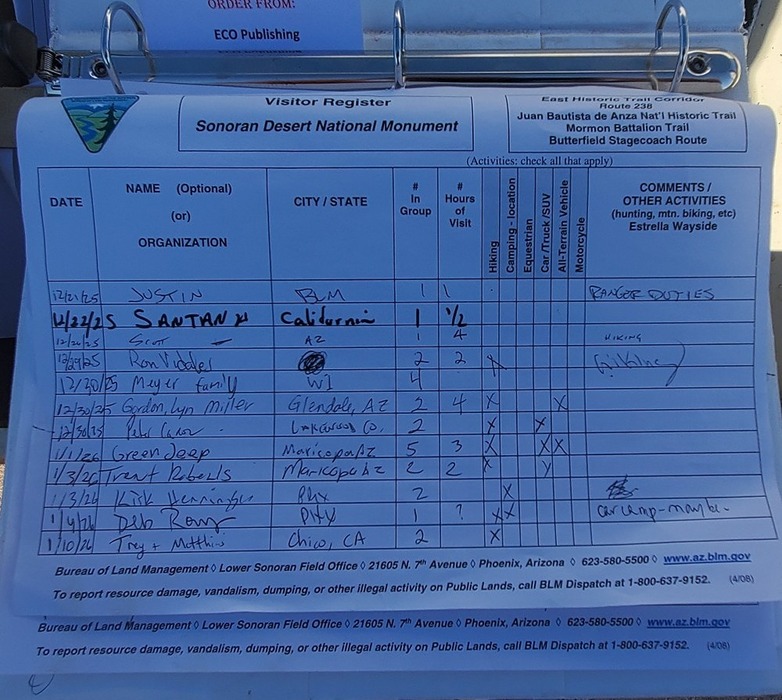 ORDER FROM:
ECO Publishing
Visitor Register
Sonoran Desert National Monument
East Historic Trail Corridor
Route 238
Juan Bautista de Anza Nat'l Historic Trail
Mormon Battalion Trail
Butterfield Stagecoach Route
(Activities: check all that apply)
DATE NAME (Optional) (or) ORGANIZATION CITY / STATE # In Group # Hours of Visit Hiking Camping - location Equestrian Car /Truck /SUV All-Terrain Vehicle Motorcycle COMMENTS / OTHER ACTIVITIES (hunting, mtn. biking, etc) Estrella Wayside
12/21/25 JUSTIN BLM 1 1 RANGER DUTIES
12/22/25 SANTAN California 1 1/2
Scot AZ 1 4 HIKING
12/29/25 Ron 2 2 X
12/30/25 Meyer family WI 4
12/30/25 Gordon, Lyn Miller Glendale, AZ 2 4 X X
12/30/25 2 X X
1/1/26 Green Jeep Maricopa AZ 5 3 X X X
1/3/26 Trent Roberts Maricopa Az 2 2 X X
1/3/26 Kirk PHX 2 X
1/4/26 Deb PHX 1 ? X X car camp - maybe.
1/10/26 Trey + Matthi Chico, CA 2 X
Bureau of Land Management ◊ Lower Sonoran Field Office ◊ 21605 N. 7th Avenue ◊ Phoenix, Arizona ◊ 623-580-5500 ◊ www.az.blm.gov
To report resource damage, vandalism, dumping, or other illegal activity on Public Lands, call BLM Dispatch at 1-800-637-9152. (4/08)
Bureau of Land Management ◊ Lower Sonoran Field Office ◊ 21605 N. 7th Avenue ◊ Phoenix, Arizona ◊ 623-580-5500 ◊ www.az.blm.gov
To report resource damage, vandalism, dumping, or other illegal activity on Public Lands, call BLM Dispatch at 1-800-637-9152. (4/08)